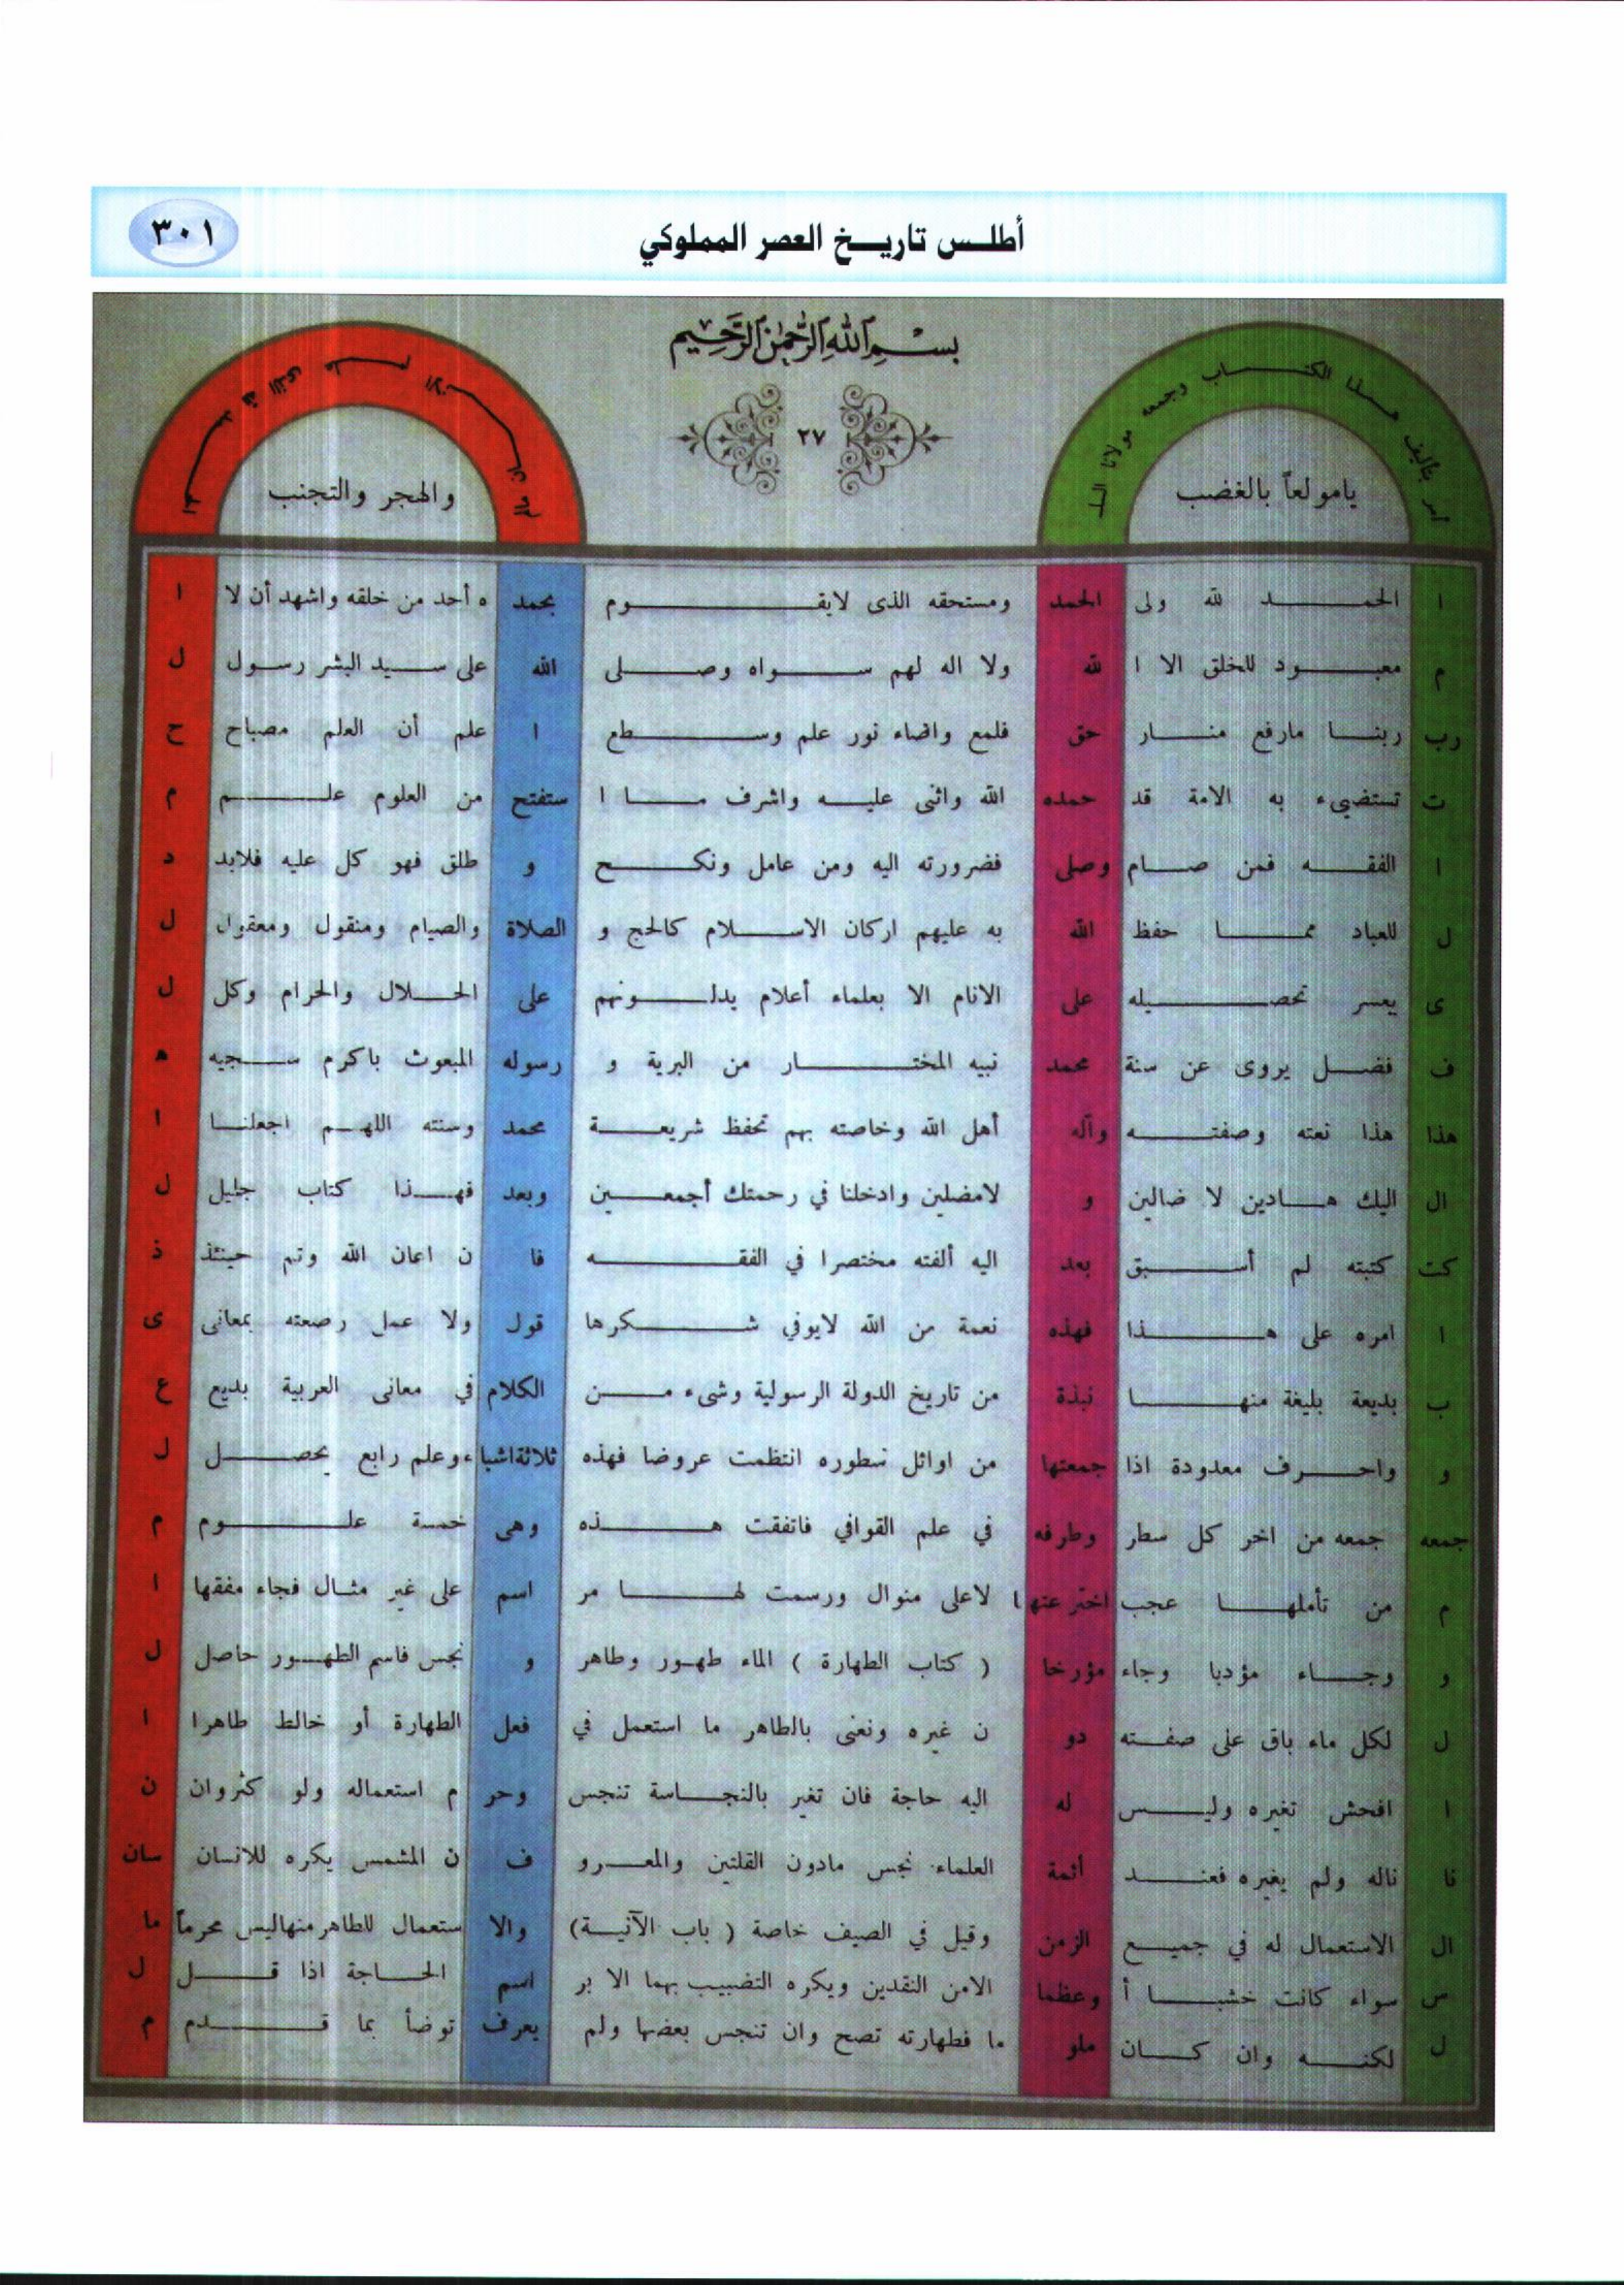 أطلس تاريخ العصر المملوكي
٣٠١
بسم الله الرحمن الرحيم
٢٧
امر بتأليف هذا الكتاب وجمعه مولانا السلـ
يامولعاً بالغضب
والهجر والتجنب
ا الحمد لله ولى الحمد ومستحقه الذى لايقوم بحمد ه أحد من خلقه واشهد أن لا ا
م معبود للخلق الا ا لله ولا اله لهم سواه وصلى الله على سيد البشر رسول ل
رب ربنا مارفع منار حق فلمع واضاء نور علم وسطع ا علم أن العلم مصباح ح
ت تستضيء به الامة قد حمده الله واثنى عليه واشرف ما ا ستفتح من العلوم علم م
ا الفقه فمن صام وصلى فضرورته اليه ومن عامل ونكح و طلق فهو كل عليه فلابد د
ل للعباد مما حفظ الله به عليهم اركان الاسلام كالحج و الصلاة والصيام ومنقول ومعقول ل
ى يعسر تحصيله على الانام الا بعلماء أعلام يدلونهم على الحلال والحرام وكل ل
ف فضل يروى عن سنة محمد نبيه المختار من البرية و رسوله المبعوث باكرم سجيه ه
هذا هذا نعته وصفته وآله أهل الله وخاصته بهم تحفظ شريعة محمد وسنته اللهم اجعلنا ا
ال اليك هادين لا ضالين و لامضلين وادخلنا في رحمتك أجمعين وبعد فهذا كتاب جليل ل
كت كتبته لم أسبق بعد اليه ألفته مختصرا في الفقه فا ن اعان الله وتم حينئذ ذ
ا امره على هذا فهذه نعمة من الله لايوفي شكرها قول ولا عمل رصعته بمعانى ى
ب بديعة بليغة منها نبذة من تاريخ الدولة الرسولية وشىء من الكلام في معانى العربية بديع ع
و واحرف معدودة اذا جمعتها من اوائل سطوره انتظمت عروضا فهذه ثلاثة اشياء وعلم رابع يحصل ل
جمعه جمعه من اخر كل سطر وطرفه في علم القوافي فاتفقت هذه وهى خمسة علوم م
م من تأملها عجب اخترعتها ا لاعلى منوال ورسمت لها مر اسم على غير مثال فجاء مفقها ا
و وجاء مؤدبا وجاء مؤرخا ( كتاب الطهارة ) الماء طهور وطاهر و نجس فاسم الطهور حاصل ل
ل لكل ماء باق على صفته دو ن غيره ونعنى بالطاهر ما استعمل في فعل الطهارة أو خالط طاهرا ا
ا افحش تغيره وليس له اليه حاجة فان تغير بالنجاسة تنجس وحر م استعماله ولو كثروان ن
نا ناله ولم يغيره فعند أئمة العلماء نجس مادون القلتين والمعرو ف ن المشمس يكره للانسان سان
ال الاستعمال له في جميع الزمن وقيل في الصيف خاصة ( باب الآنية) والا ستعمال للطاهر منهاليس محرماً ما
س سواء كانت خشبا أ وعظما الامن النقدين ويكره التضبيب بهما الا بر اسم الحاجة اذا قل ل
ل لكنه وان كان ملو ما فطهارته تصح وان تنجس بعضها ولم يعرف توضأ بما قدم م